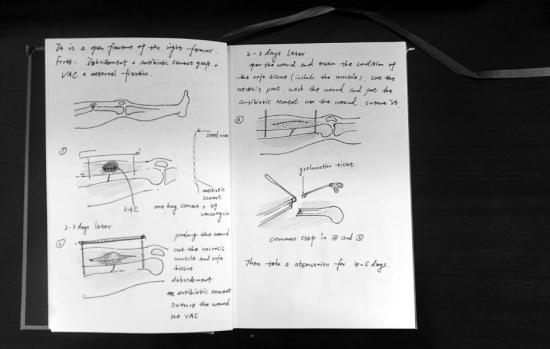 It is a open fracture of the right femur.
First: Debridement + antibiotic cement graft +
VAC + external fixation.
①
steel wire
antibiotic
cement
VAC
one bag cement + 4g
vancomycin
2-3 days later
②
prolong the wound
cut the necrosis
muscle and soft
tissue
debridement
antibiotic cement
suture the wound
no VAC
2-3 days later
open the wound and exam the condition of
the soft tissue (include the muscle). cut the
necrosis part. wash the wound and put the
antibiotic cement into the wound. suture it
③
granulation tissue
common step in ② and ③
Then take a observation for 4-5 days.